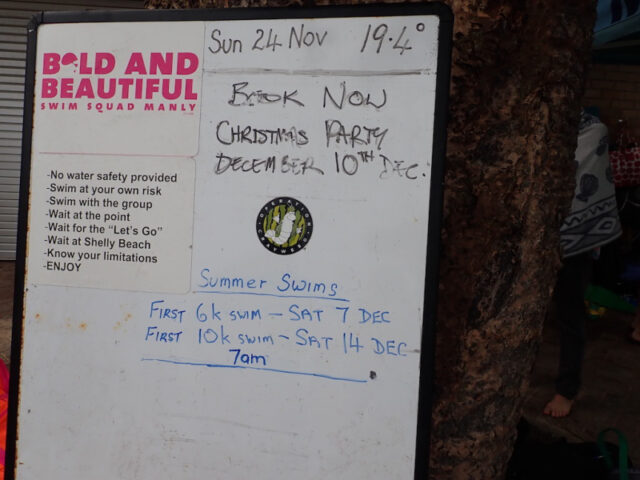 BOLD AND
BEAUTIFUL
SWIM SQUAD MANLY
Sun 24 Nov 19.4°
BOOK NOW
CHRISTMAS PARTY
DECEMBER 10TH DEC.
-No water safety provided
-Swim at your own risk
-Swim with the group
-Wait at the point
-Wait for the "Let's Go"
-Wait at Shelly Beach
-Know your limitations
-ENJOY
OPERATION
CRAYWEED
Summer Swims
FIRST 6k SWIM – SAT 7 DEC
FIRST 10k SWIM – SAT 14 DEC
7am